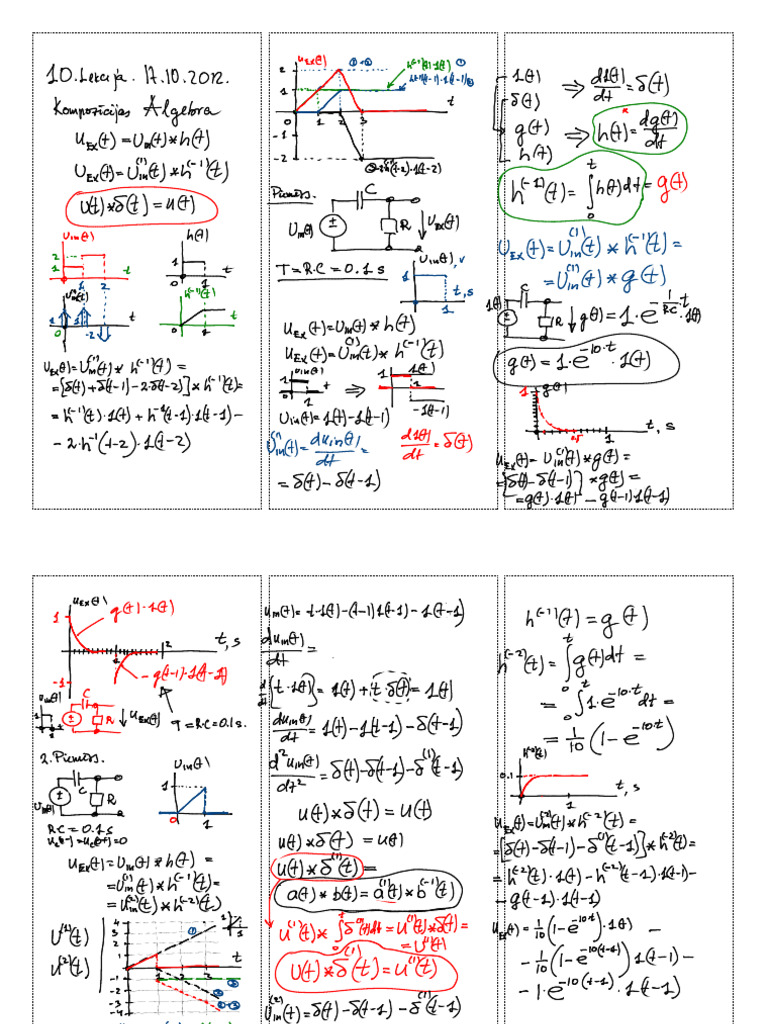 10. Lekcija. 17.10.2012.
Kompozīcijas Algebra
u_Ex(t) = U_in(t) * h(t)
U_Ex(t) = U_in^(1)(t) * h^(-1)(t)
U(t) * δ(t) = u(t)
U_in(t)
h(t)
2
1
t
1 2
1
0 1
t
U_in^(1)(t)
h^(-1)(t)
1 1
-2
t
0 1
t
u_Ex(t) = U_in^(1)(t) * h^(-1)(t) =
= [δ(t) + δ(t-1) - 2δ(t-2)] * h^(-1)(t) =
= h^(-1)(t)·1(t) + h^(-1)(t-1)·1(t-1) -
- 2·h^(-1)(t-2)·1(t-2)
u_Ex(t)
①+②
h^(-1)(t)·1(t) ①
h^(-1)(t-1)·1(t-1) ②
2
1
0
-1
-2
1 2 3
t
-2h^(-1)(t-2)·1(t-2)
Piemērs.
C
U_in(t)
R
U_Ex(t)
T = R·C = 0.1 s
U_in(t), V
1
0 1
t, s
u_Ex(t) = U_in(t) * h(t)
u_Ex(t) = U_in^(1)(t) * h^(-1)(t)
U_in(t)
1
0 1
t
⇒
1
1(t)
1
-1(t-1)
U_in(t) = 1(t) - 1(t-1)
U_in^(1)(t) = du_in(t)/dt =
d1(t)/dt = δ(t)
= δ(t) - δ(t-1)
1(t) ⇒ d1(t)/dt = δ(t)
δ(t)
g(t) ⇒ h(t) = dg(t)/dt
h(t)
h^(-1)(t) = ∫_0^t h(t)dt = g(t)
U_Ex(t) = U_in^(1)(t) * h^(-1)(t) =
= U_in^(1)(t) * g(t)
1(t)
C
R
g(t) = 1·e^(-(1/RC)·t)·1(t)
g(t) = 1·e^(-10·t)·1(t)
1
g(t)
1
t, s
u_Ex(t) = U_in^(1)(t) * g(t) =
= [δ(t) - δ(t-1)] * g(t) =
= g(t)·1(t) - g(t-1)·1(t-1)
u_Ex(t)
1
g(t)·1(t)
2
t, s
-1
- g(t-1)·1(t-1)
U_in(t)
C
R
U_Ex(t)
T = R·C = 0.1 s.
2. Piemērs.
C
U_in(t)
R
U_in(t)
1
0 1
t
RC = 0.1 s
U_c(-) = U_c(+) = 0
u_Ex(t) = U_in(t) * h(t) =
= U_in^(1)(t) * h^(-1)(t) =
= U_in^(2)(t) * h^(-2)(t)
U^(1)(t)
U^(2)(t)
4
3
2
1
0
-1
-2
-3
-4
1 2 3
t
①
②
③
u_in(t) = t·1(t) - (t-1)·1(t-1) - 1(t-1)
du_in(t)/dt =
d/dt [t·1(t)] = 1(t) + t·δ(t) = 1(t)
du_in(t)/dt = 1(t) - 1(t-1) - δ(t-1)
d²u_in(t)/dt² = δ(t) - δ(t-1) - δ^(1)(t-1)
u(t) * δ(t) = u(t)
u(t) * δ(t) = u(t)
u(t) * δ^(1)(t) =
a(t) * b(t) = a^(1)(t) * b^(-1)(t)
u^(1)(t) * ∫_0^t δ^(1)(t)dt = u^(1)(t) * δ(t) =
= U^(1)(t)
U(t) * δ^(1)(t) = u^(1)(t)
U_in^(2)(t) = δ(t) - δ(t-1) - δ^(1)(t-1)
h^(-1)(t) = g(t)
h^(-2)(t) = ∫_0^t g(t)dt =
= ∫_0^t 1·e^(-10·t)dt =
= 1/10 (1 - e^(-10t))
h^(-2)(t)
0.1
0 1
t, s
u_Ex(t) = U_in^(2)(t) * h^(-2)(t) =
= [δ(t) - δ(t-1) - δ^(1)(t-1)] * h^(-2)(t) =
= h^(-2)(t)·1(t) - h^(-2)(t-1)·1(t-1) -
- g(t-1)·1(t-1)
u_Ex(t) = 1/10 (1 - e^(-10·t))·1(t) -
- 1/10 (1 - e^(-10(t-1)))·1(t-1) -
- 1·e^(-10(t-1))·1(t-1)